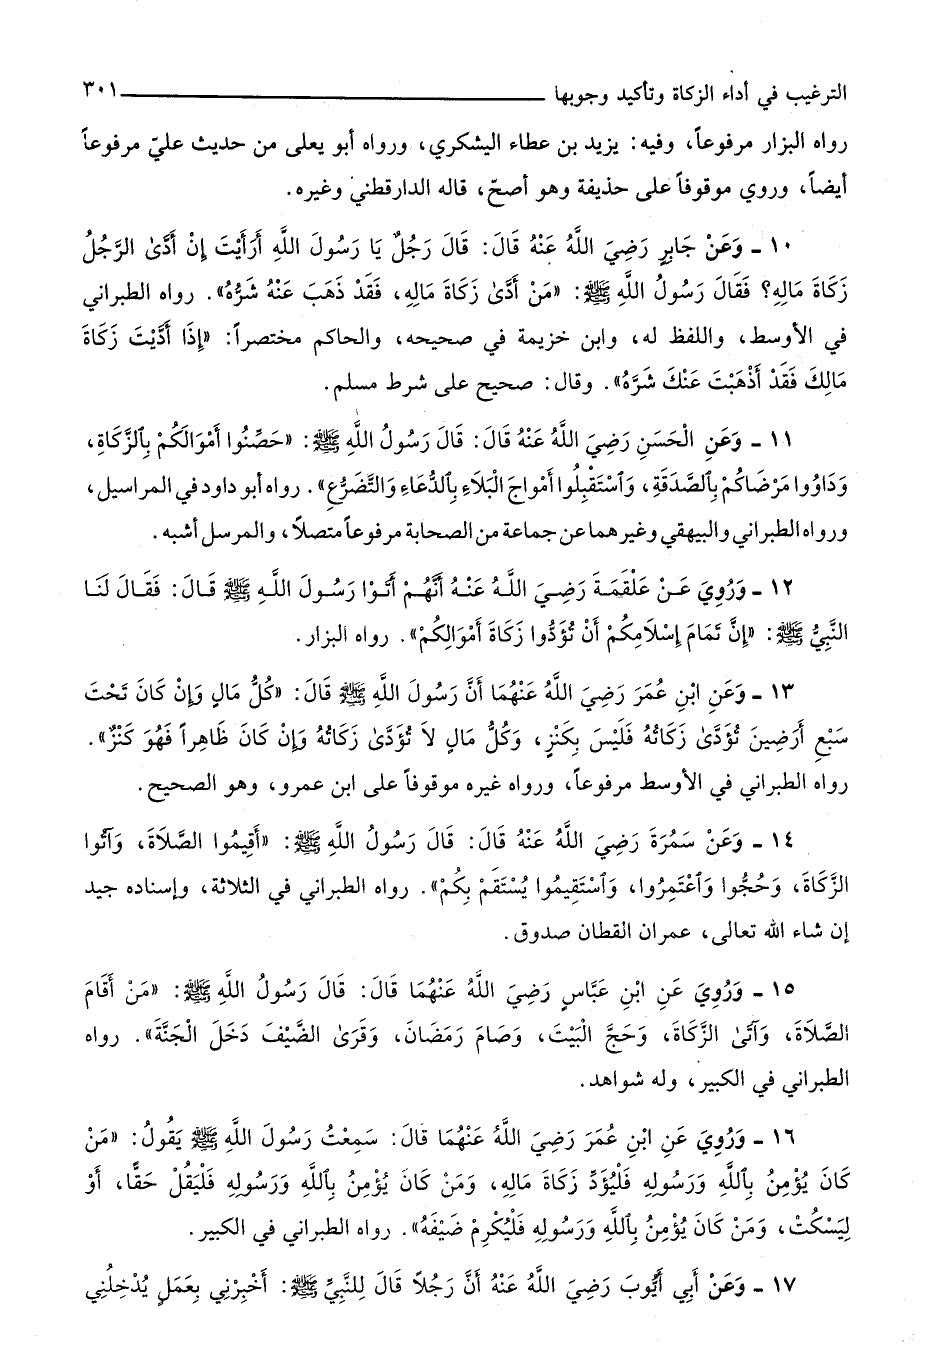 الترغيب في أداء الزكاة وتأكيد وجوبها ٣٠١
رواه البزار مرفوعاً، وفيه: يزيد بن عطاء اليشكري، ورواه أبو يعلى من حديث عليّ مرفوعاً
أيضاً، وروي موقوفاً على حذيفة وهو أصحّ، قاله الدارقطني وغيره.
١٠ ـ وَعَنْ جَابِرٍ رَضِيَ اللَّهُ عَنْهُ قَالَ: قَالَ رَجُلٌ يَا رَسُولَ اللَّهِ أَرَأَيْتَ إِنْ أَدَّىٰ الرَّجُلُ
زَكَاةَ مَالِهِ؟ فَقَالَ رَسُولُ اللَّهِ ﷺ: «مَنْ أَدَّىٰ زَكَاةَ مَالِهِ، فَقَدْ ذَهَبَ عَنْهُ شَرُّهُ». رواه الطبراني
في الأوسط، واللفظ له، وابن خزيمة في صحيحه، والحاكم مختصراً: «إِذَا أَدَّيْتَ زَكَاةَ
مَالِكَ فَقَدْ أَذْهَبْتَ عَنْكَ شَرَّهُ». وقال: صحيح على شرط مسلم.
١١ ـ وَعَنِ الْحَسَنِ رَضِيَ اللَّهُ عَنْهُ قَالَ: قَالَ رَسُولُ اللَّهِ ﷺ: «حَصِّنُوا أَمْوَالَكُمْ بِٱلزَّكَاةِ،
وَدَاوُوا مَرْضَاكُمْ بِٱلصَّدَقَةِ، وَٱسْتَقْبِلُوا أَمْوَاجَ الْبَلَاءِ بِٱلدُّعَاءِ وَالتَّضَرُّعِ». رواه أبو داود في المراسيل،
ورواه الطبراني والبيهقي وغيرهما عن جماعة من الصحابة مرفوعاً متصلاً، والمرسل أشبه.
١٢ ـ وَرُوِيَ عَنْ عَلْقَمَةَ رَضِيَ اللَّهُ عَنْهُ أَنَّهُمْ أَتَوْا رَسُولَ اللَّهِ ﷺ قَالَ: فَقَالَ لَنَا
النَّبِيُّ ﷺ: «إِنَّ تَمَامَ إِسْلَامِكُمْ أَنْ تُؤَدُّوا زَكَاةَ أَمْوَالِكُمْ». رواه البزار.
١٣ ـ وَعَنِ ابْنِ عُمَرَ رَضِيَ اللَّهُ عَنْهُمَا أَنَّ رَسُولَ اللَّهِ ﷺ قَالَ: «كُلُّ مَالٍ وَإِنْ كَانَ تَحْتَ
سَبْعِ أَرَضِينَ تُؤَدَّىٰ زَكَاتُهُ فَلَيْسَ بِكَنْزٍ، وَكُلُّ مَالٍ لاَ تُؤَدَّىٰ زَكَاتُهُ وَإِنْ كَانَ ظَاهِراً فَهُوَ كَنْزٌ».
رواه الطبراني في الأوسط مرفوعاً، ورواه غيره موقوفاً على ابن عمرو، وهو الصحيح.
١٤ ـ وَعَنْ سَمُرَةَ رَضِيَ اللَّهُ عَنْهُ قَالَ: قَالَ رَسُولُ اللَّهِ ﷺ: «أَقِيمُوا الصَّلَاةَ، وَآتُوا
الزَّكَاةَ، وَحُجُّوا وَٱعْتَمِرُوا، وَٱسْتَقِيمُوا يُسْتَقَمْ بِكُمْ». رواه الطبراني في الثلاثة، وإسناده جيد
إن شاء الله تعالى، عمران القطان صدوق.
١٥ ـ وَرُوِيَ عَنِ ابْنِ عَبَّاسٍ رَضِيَ اللَّهُ عَنْهُمَا قَالَ: قَالَ رَسُولُ اللَّهِ ﷺ: «مَنْ أَقَامَ
الصَّلَاةَ، وَآتَىٰ الزَّكَاةَ، وَحَجَّ الْبَيْتَ، وَصَامَ رَمَضَانَ، وَقَرَىٰ الضَّيْفَ دَخَلَ الْجَنَّةَ». رواه
الطبراني في الكبير، وله شواهد.
١٦ ـ وَرُوِيَ عَنِ ابْنِ عُمَرَ رَضِيَ اللَّهُ عَنْهُمَا قَالَ: سَمِعْتُ رَسُولَ اللَّهِ ﷺ يَقُولُ: «مَنْ
كَانَ يُؤْمِنُ بِٱللَّهِ وَرَسُولِهِ فَلْيُؤَدِّ زَكَاةَ مَالِهِ، وَمَنْ كَانَ يُؤْمِنُ بِٱللَّهِ وَرَسُولِهِ فَلْيَقُلْ حَقًّا، أَوْ
لِيَسْكُتْ، وَمَنْ كَانَ يُؤْمِنُ بِٱللَّهِ وَرَسُولِهِ فَلْيُكْرِمْ ضَيْفَهُ». رواه الطبراني في الكبير.
١٧ ـ وَعَنْ أَبِي أَيُّوبَ رَضِيَ اللَّهُ عَنْهُ أَنَّ رَجُلاً قَالَ لِلنَّبِيِّ ﷺ: أَخْبِرْنِي بِعَمَلٍ يُدْخِلُنِي